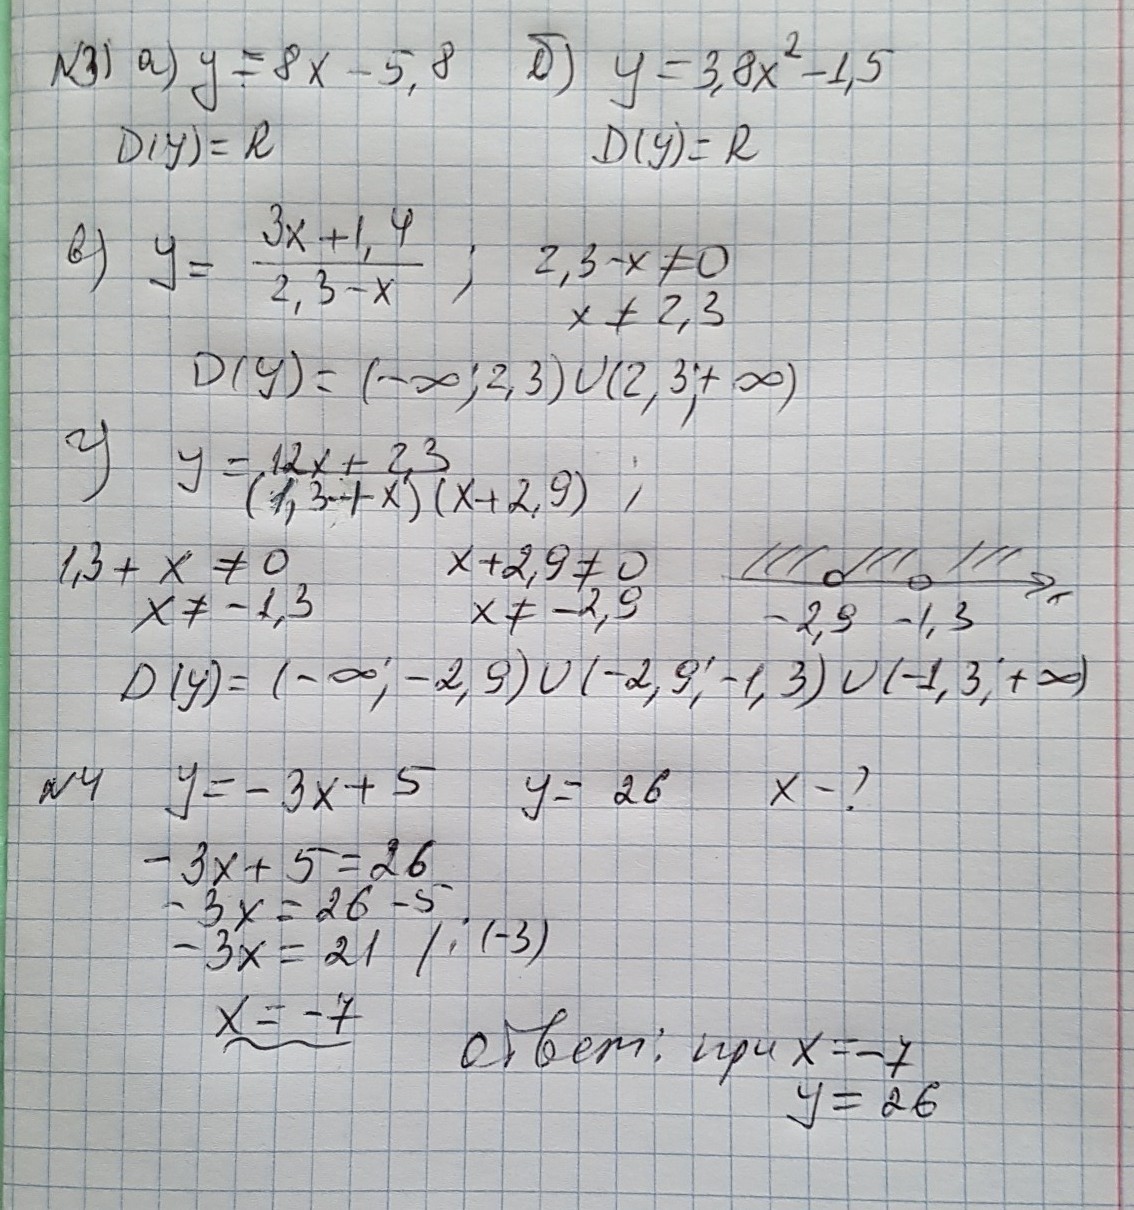 №3) а) y = 8x - 5,8   б) y = 3,8x² - 1,5
D(y) = R   D(y) = R
в) y = (3x + 1,4)/(2,3 - x) ; 2,3 - x ≠ 0
x ≠ 2,3
D(y) = (-∞; 2,3) ∪ (2,3; +∞)
г) y = 12x + 2,3
(1,3 + x)(x + 2,9) ;
1,3 + x ≠ 0   x + 2,9 ≠ 0
x ≠ -1,3   x ≠ -2,9   -2,9   -1,3   x
D(y) = (-∞; -2,9) ∪ (-2,9; -1,3) ∪ (-1,3; +∞)
№4   y = -3x + 5   y = 26   x - ?
-3x + 5 = 26
-3x = 26 - 5
-3x = 21 / : (-3)
x = -7
Ответ: при x = -7
y = 26